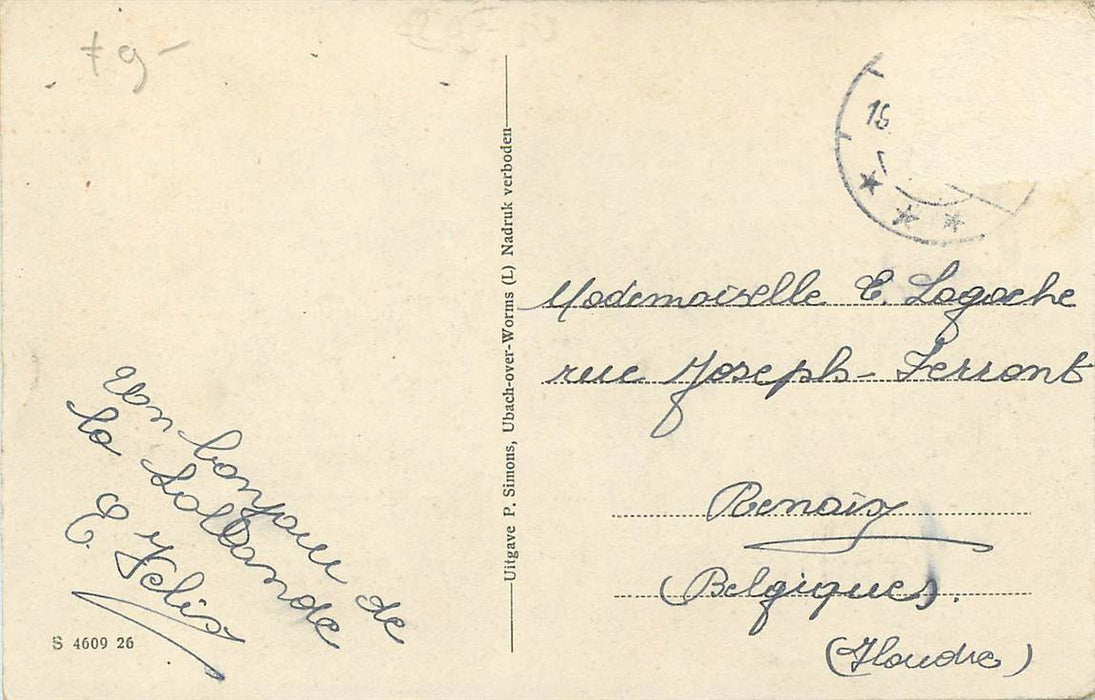 79-
Un bonjour de
la Hollande
E. Felix
S 4609 26
Uitgave P. Simons, Ubach-over-Worms (L) Nadruk verboden
16
Mademoiselle E. Lagache
rue Joseph-Ferrant
Renaix
(Belgique).
(Flandre)